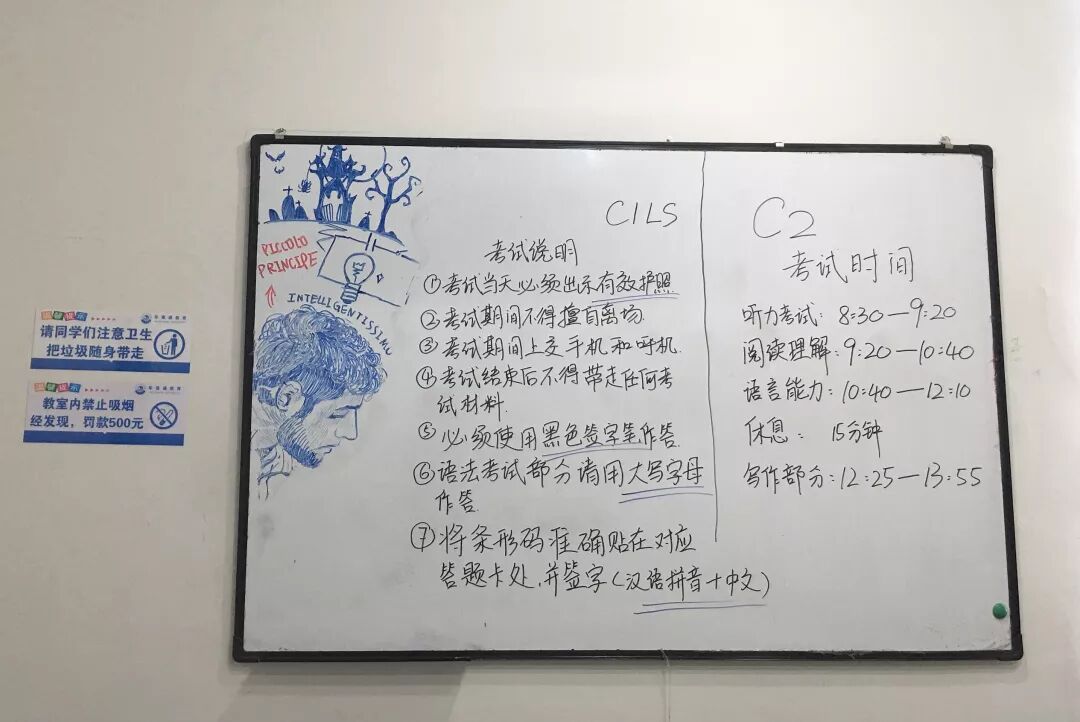 PICCOLO
PRINCIPE
INTELLIGENTISSIMO
CILS
考试说明
①考试当天必须出示有效护照
②考试期间不得擅自离场
③考试期间上交手机和呼机.
④考试结束后不得带走任何考
试材料.
⑤必须使用黑色签字笔作答.
⑥语法考试部分请用大写字母
作答.
⑦将条形码准确贴在对应
答题卡处,并签字(汉语拼音+中文)
C2
考试时间
听力考试: 8:30—9:20
阅读理解: 9:20—10:40
语言能力: 10:40—12:10
休息: 15分钟
写作部分: 12:25—13:55
温馨提示
请同学们注意卫生
把垃圾随身带走
温馨提示
教室内禁止吸烟
经发现，罚款500元